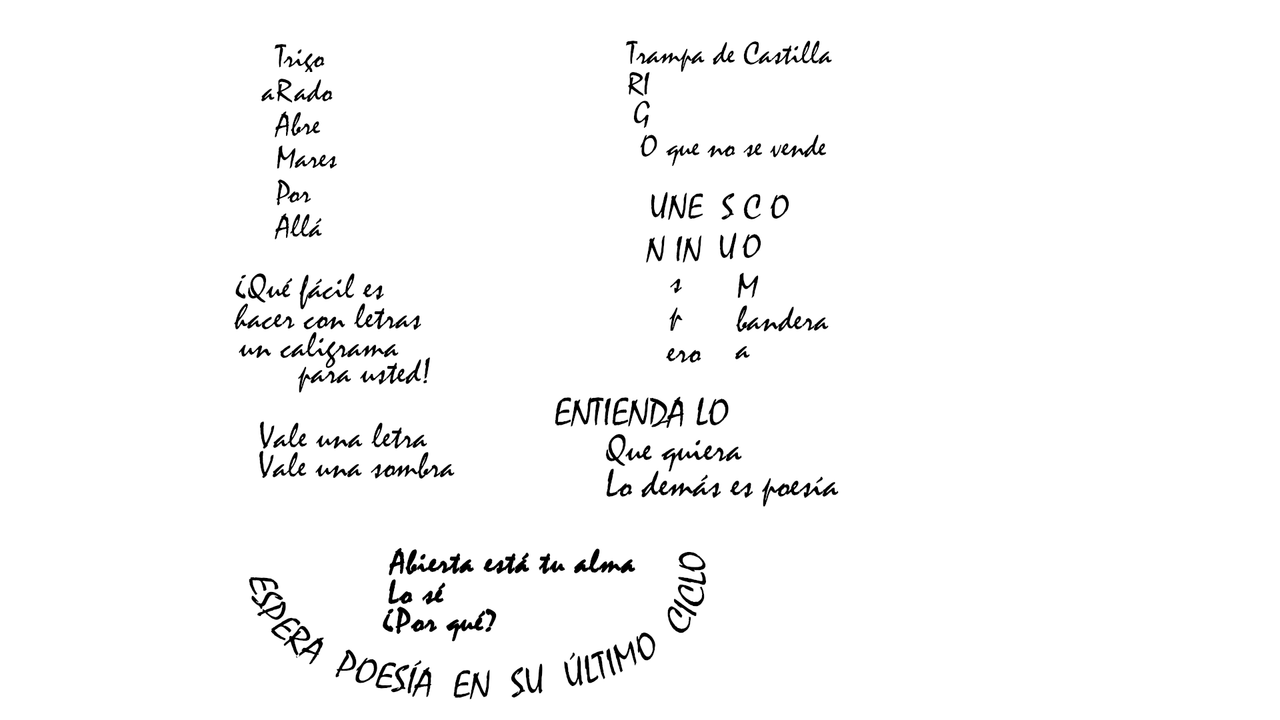 Trigo
aRado
Abre
Mares
Por
Allá
¡Qué fácil es
hacer con letras
un caligrama
para usted!
Vale una letra
Vale una sombra
Trampa de Castilla
RI
G
O que no se vende
UNE S C O
N IN U O
s M
p bandera
ero a
ENTIENDA LO
Que quiera
Lo demás es poesía
Abierta está tu alma
Lo sé
¿Por qué?
ESPERA POESÍA EN SU ÚLTIMO CICLO